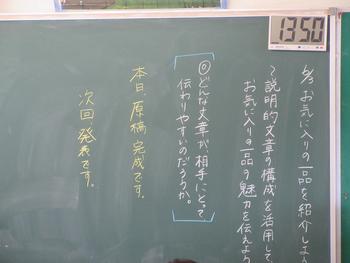 13:50
5/3 お気に入りの一品を紹介しよ
〜説明的文章の構成を活用して
お気に入りの一品の魅力を伝えよう
◎どんな文章が相手にとって
伝わりやすいのだろうか。
本日、原稿完成です。
次回発表です。